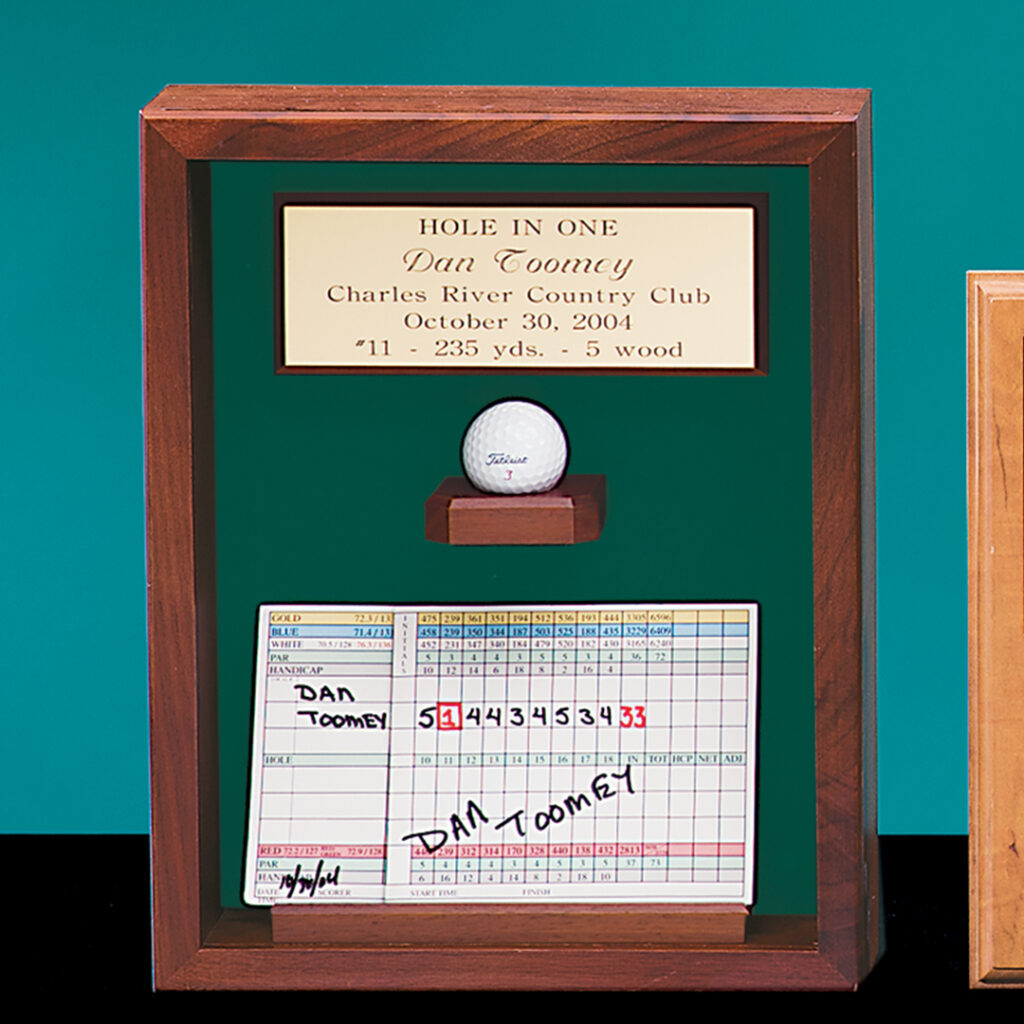 HOLE IN ONE
Dan Toomey
Charles River Country Club
October 30, 2004
#11 - 235 yds. - 5 wood
Titleist
3
GOLD 72.3 / 13 475 239 361 351 194 512 536 193 444 3305 6596
BLUE 71.4 / 13 458 239 350 344 187 503 525 188 435 3229 6409
WHITE 70.5 / 128 - 76.3 / 136 452 231 347 340 184 479 520 182 430 3165 6240
INITIALS
PAR 5 3 4 4 3 5 5 3 4 36 72
HANDICAP 10 12 14 6 18 8 2 16 4
DAN
TOOMEY 5 1 4 4 3 4 5 3 4 33
HOLE 10 11 12 13 14 15 16 17 18 IN TOT HCP NET ADJ
DAN TOOMEY
RED 72.2 / 127 72.9 / 128 239 312 314 170 328 440 138 432 2813
PAR 5 4 4 4 3 4 5 3 5 37 73
HAN 6 16 12 4 14 8 2 18 10
10/30/04
DATE SCORER START TIME FINISH
TIME